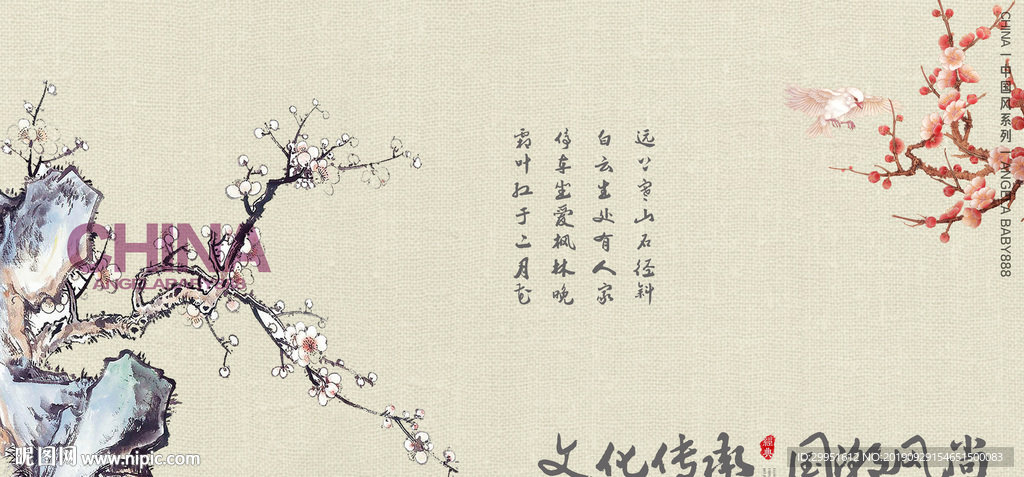 远上寒山石径斜
白云生处有人家
停车坐爱枫林晚
霜叶红于二月花
CHINA
ANGELABABY888
CHINA | 中国风系列 | ANGELA BABY888
文化传承
经典
国潮风尚
昵图网 www.nipic.com
ID:29951612 NO:20190929154651500083